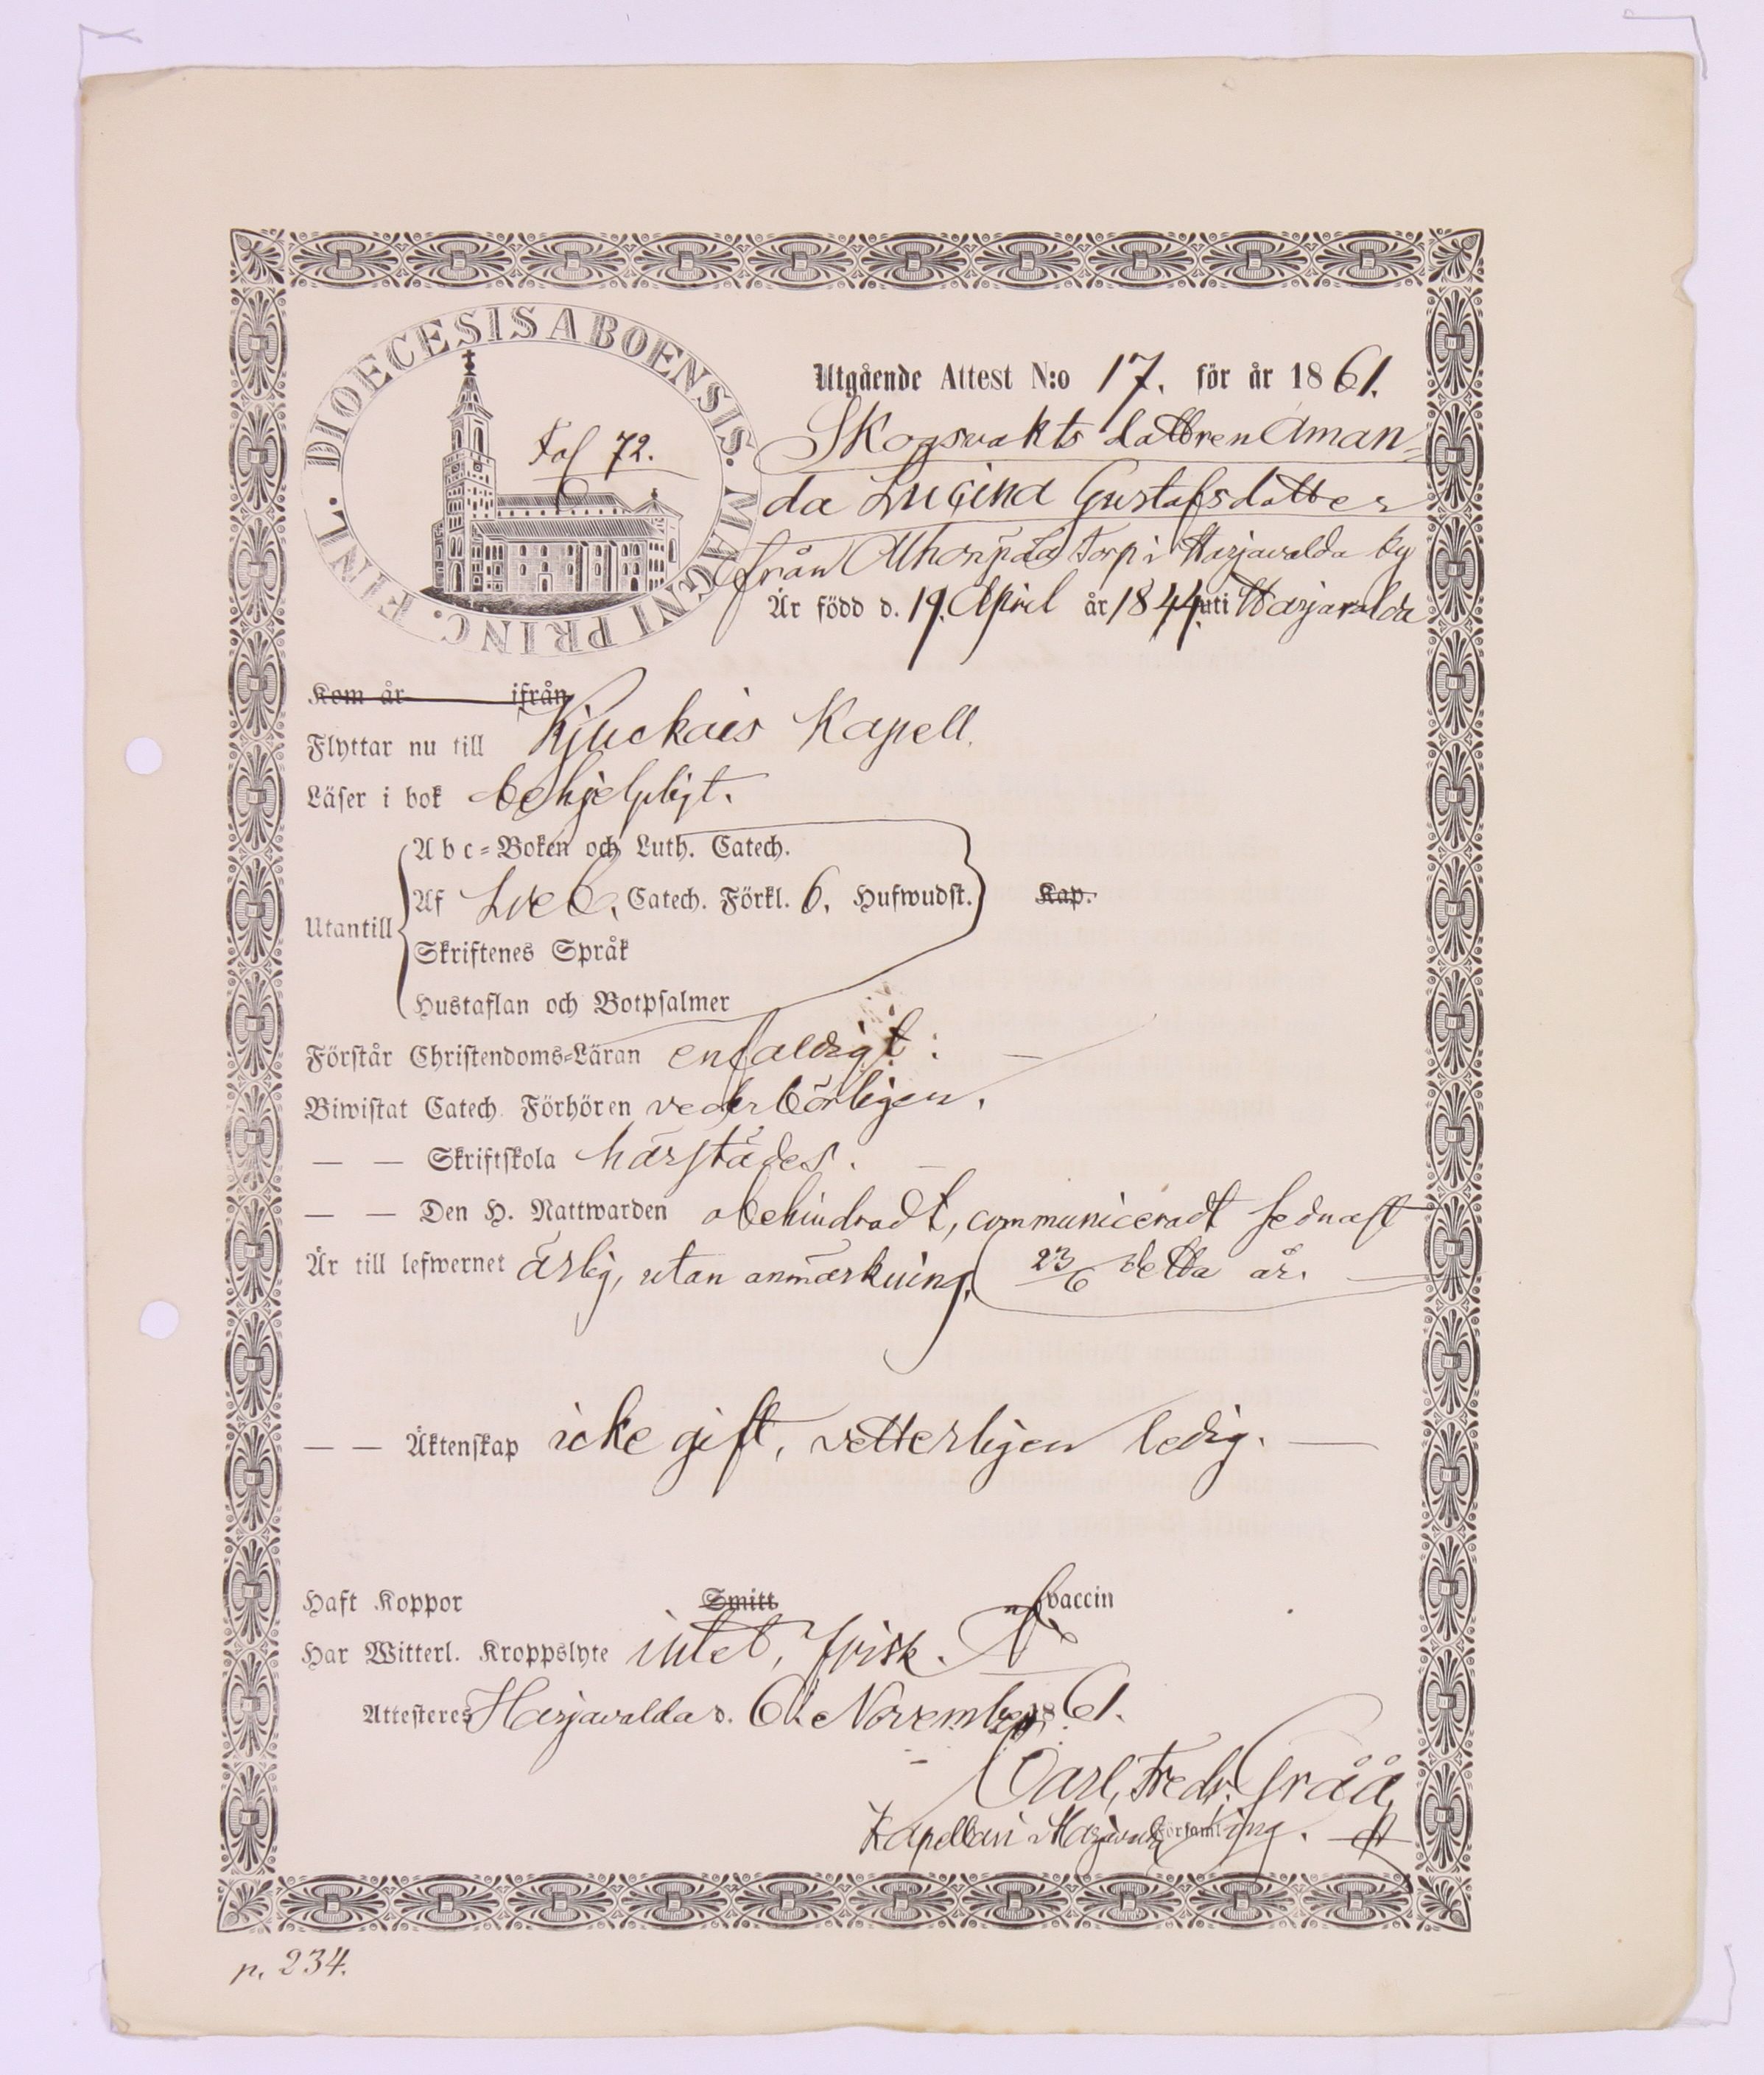 DIOECESIS ABOENSIS. MAGNI PRINC. FINL.
Fol 72.
Utgående Attest N:o 17. för år 1861.
Skogsvakts dottren Aman=
da Lucina Gustafsdotter
från Torp i Harjavalda by
Är född d. 19. April år 1844. uti Harjavalda
Kom år ifrån
Flyttar nu till Kjuckais Kapell.
Läser i bok behjelpligt.
Abc=Boken och Luth. Catech.
Af Sveb. Catech. Förkl. 6. Hufwudst. Kap.
Utantill
Skriftenes Språk
Hustaflan och Botpsalmer
Förstår Christendoms=Läran enfaldigt. —
Biwistat Catech. Förhören vederbörligen.
— — Skriftskola härstädes. —
— — Den H. Nattwarden obehindradt, communiceradt sednast
Är till lefwernet ärlig, utan anmärkning. 23/6 detta år. —
— — Äktenskap icke gift, vetterligen ledig. —
Haft Koppor Smitt vaccin
Har Witterl. Kroppslyte intet, frisk.
Attesteres Harjavalda d. 6. November 1861.
Carl Fredr. Gråå,
Kapellan i Harjavalda Församling.
p. 234.